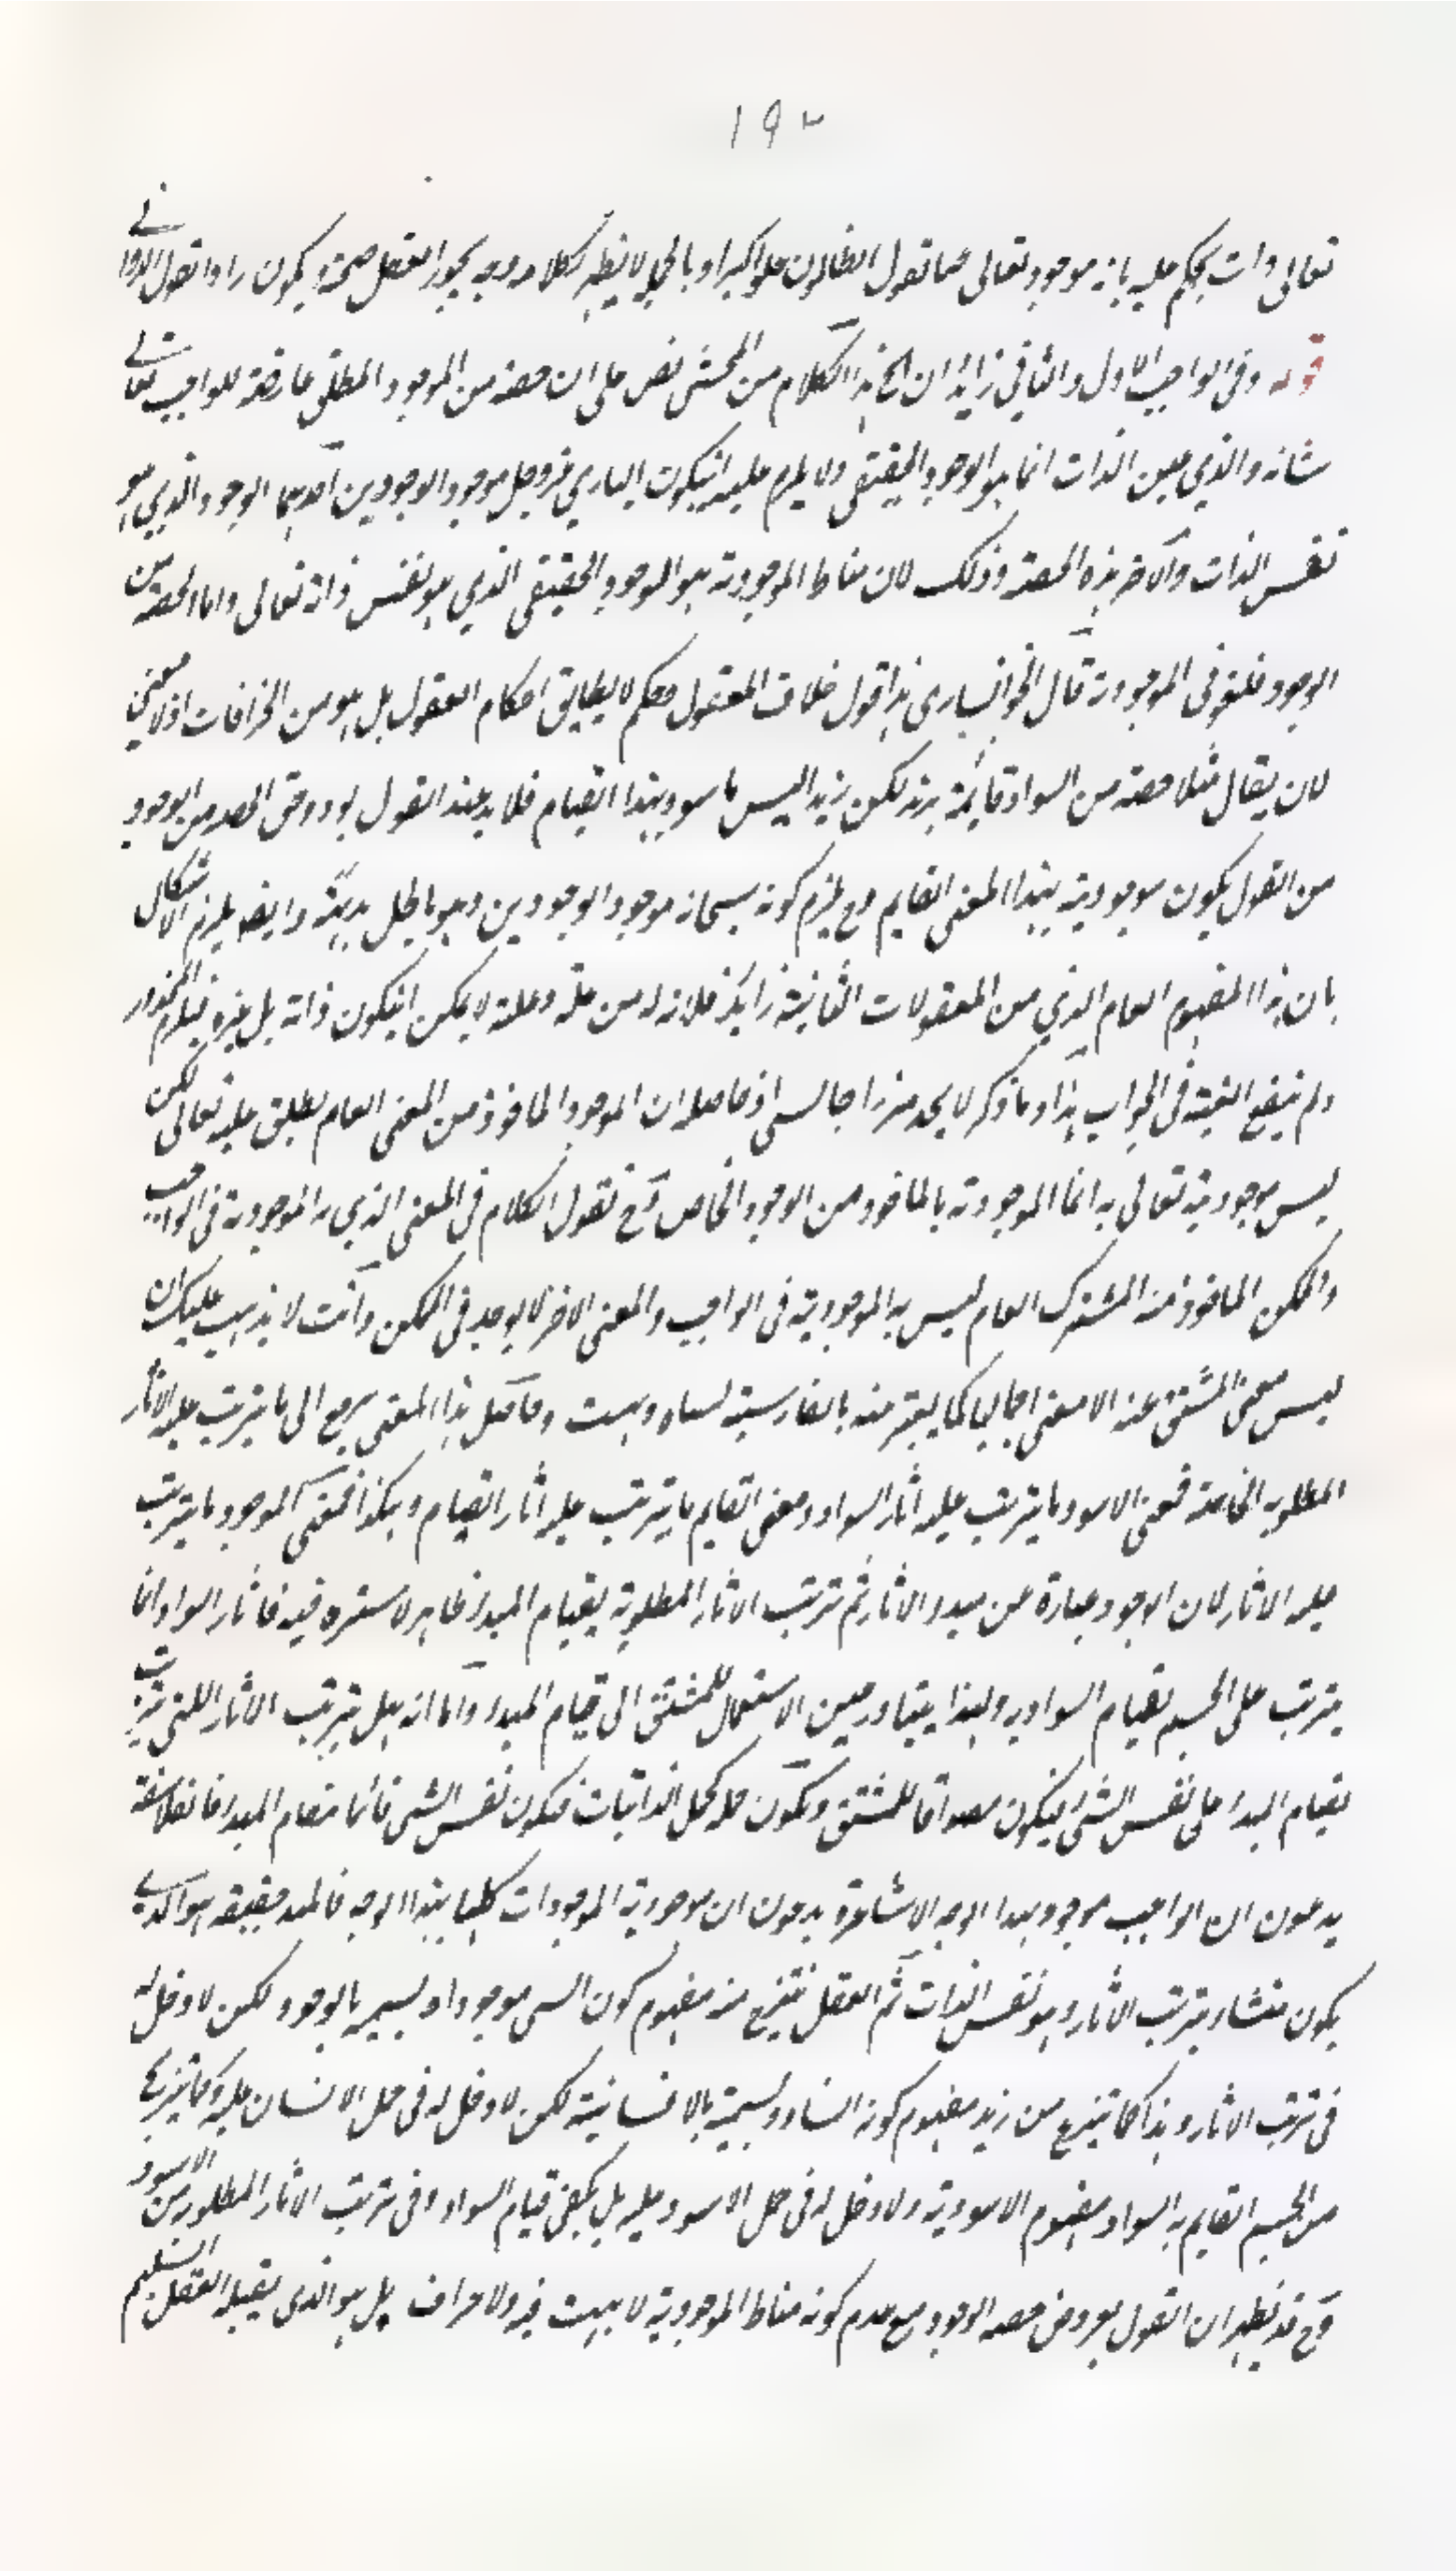 ١٩٢
تعالى ذات يحكم عليه بانه موجود تعالى عما يقول الظالمون علوا كبيرا وبالجملة لا يظهر لكلامه وجه يجوز العقل صحته ويكون رادا لقول الدواني
قوله وفى الواجب الاول والثاني زايدان الخ هذا الكلام من المحشى نص على ان حصة من الموجود المطلق عارضة للواجب تعالى
شانه والذي عين الذات انما هو الوجود الحقيقى ولا يلزم عليه ان يكون البارى عز وجل موجودا بوجودين احدهما الوجود الذي هو
نفس الذات والآخر هذه الحصة وذلك لان مناط الموجودية هو الوجود الحقيقى الذي هو نفس ذاته تعالى واما الحصة من
الوجود فلغو فى الموجودية قال الخوانسارى هذا قول خلاف المعقول وحكم لا يطابق احكام العقول بل هو من الخرافات اذ لا معنى
لان يقال مثلا حصة من السواد قايمة بزيد لكن زيدا ليس باسود بهذا القيام فلا بد عند القول بعروض الحصة من الوجود
من القول بكون موجوديته بهذا المعنى القايم وح يلزم كونه سبحانه موجودا بوجودين وهو باطل بديهة وايضا يلزم الاشكال
بان هذا المفهوم العام الذي من المعقولات الثانية زايد فلا بد له من علة وعلته لا يمكن ان يكون ذاته بل غيره فيلزم المحذور
ولم ينفع العينية فى الجواب هذا وما ذكر لا يجد من زاجا لسى اذ حاصله ان الموجود الماخوذ من المعنى العام يطلق عليه تعالى لكن
ليس موجوديته تعالى به انما الموجودية بالماخوذ من الوجود الخاص وح نقول الكلام فى المعنى الذي به الموجودية فى الواجب
والممكن الماخوذ منه المشترك العام ليس به الموجودية فى الواجب والمعنى الاخر لا يوجد فى الممكن وانت لا يذهب عليك ان
ليس معنى المشتق عنه الا معنى اجماليا كما يعبر منه بالفارسية لسياه وهست وحاصل هذا المعنى يرجع الى ما يترتب عليه الاثار
المطلوبه الخاصة فمعنى الاسود ما يترتب عليه اثار السواد ومعنى القايم ما يترتب عليه اثار القيام وهكذا فمعنى الموجود ما يترتب
عليه الاثار لان الوجود عبارة عن مبدء الاثار ثم ترتب الاثار المطلوبة بقيام المبدء ظاهر لا سترة فيه فاثار السواد انما
يترتب على الجسم بقيام السواد به ولهذا يتبادر حين الاستعمال للمشتق الى قيام المبدء واما انه هل يترتب الاثار اللتى يترتب
بقيام المبدء على نفس الشئ فيكون مصداقا للمشتق ويكون حمله كحمل الذاتيات فيكون نفس الشى قائما مقام المبدء فالفلاسفة
يدعون ان الواجب موجود بهذا الوجه الاشاعرة يدعون ان موجودية الموجودات كلها بهذا الوجه فالمبدء حقيقة هو الذي
يكون منشاء يترتب الاثار وهو نفس الذات ثم العقل ينتزع منه مفهوم كون الشى موجودا ويسميه بالوجود لكن لا دخل له
فى ترتب الاثار وهذا كما ينتزع من زيد مفهوم كونه انسانا ويسميه بالانسانية لكن لا دخل له فى حمل الانسان عليه وكما ينتزع
من الجسم القايم به السواد مفهوم الاسودية ولا دخل له فى حمل الاسود عليه بل يكفى قيام السواد وفى ترتب الاثار المطلوبة من الاسود
وح قد يظهر ان القول بعروض حصه الوجود مع عدم كونه مناط الموجودية لا بهت فيه ولا جزاف بل هو الذى يقبله العقل السليم